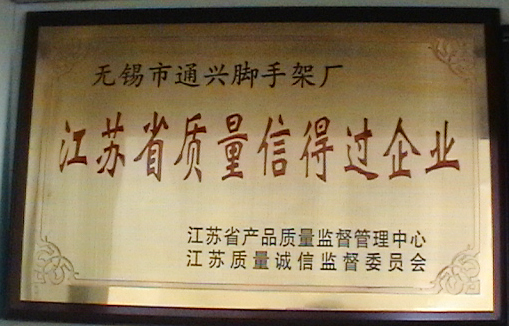 无锡市通兴脚手架厂
江苏省质量信得过企业
江苏省产品质量监督管理中心
江苏质量诚信监督委员会